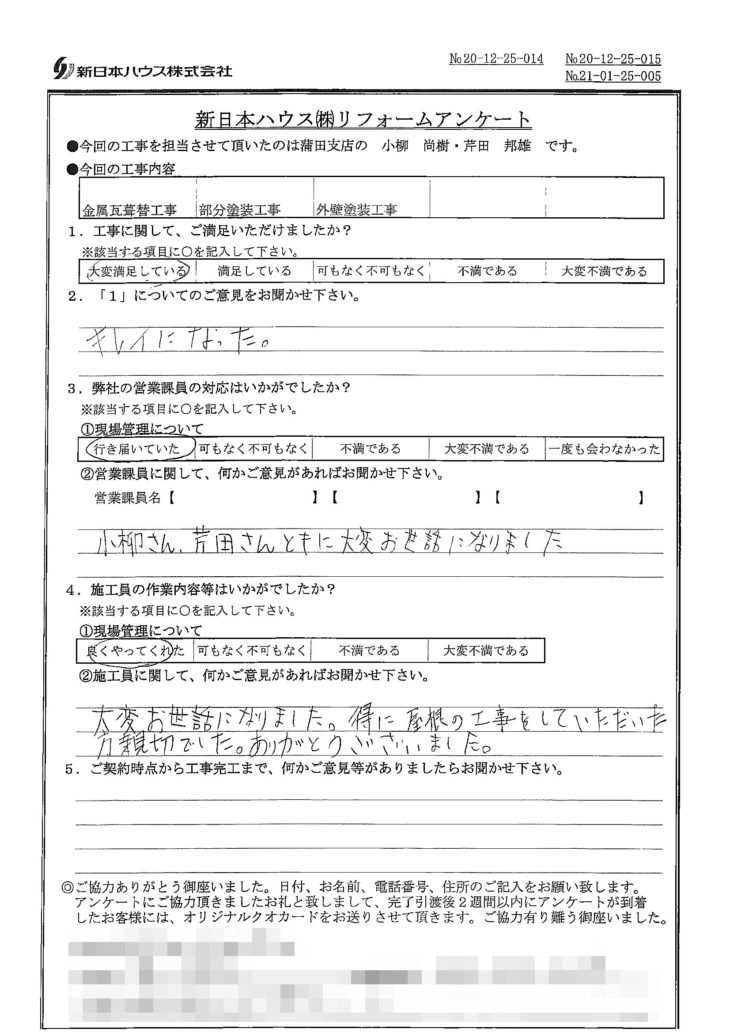 新日本ハウス株式会社
№20-12-25-014 №20-12-25-015
№21-01-25-005
新日本ハウス㈱リフォームアンケート
●今回の工事を担当させて頂いたのは蒲田支店の 小柳 尚樹・芹田 邦雄 です。
●今回の工事内容
金属瓦葺替工事 部分塗装工事 外壁塗装工事
1．工事に関して、ご満足いただけましたか？
※該当する項目に○を記入して下さい。
大変満足している 満足している 可もなく不可もなく 不満である 大変不満である
2．「1」についてのご意見をお聞かせ下さい。
キレイになった。
3．弊社の営業課員の対応はいかがでしたか？
※該当する項目に○を記入して下さい。
①現場管理について
行き届いていた 可もなく不可もなく 不満である 大変不満である 一度も会わなかった
②営業課員に関して、何かご意見があればお聞かせ下さい。
営業課員名【 】【 】【 】
小柳さん、芹田さんともに大変お世話になりました
4．施工員の作業内容等はいかがでしたか？
※該当する項目に○を記入して下さい。
①現場管理について
良くやってくれた 可もなく不可もなく 不満である 大変不満である
②施工員に関して、何かご意見があればお聞かせ下さい。
大変お世話になりました。得に屋根の工事をしていただいた
方親切でした。ありがとうございました。
5．ご契約時点から工事完工まで、何かご意見等がありましたらお聞かせ下さい。
◎ご協力ありがとう御座いました。日付、お名前、電話番号、住所のご記入をお願い致します。
アンケートにご協力頂きましたお礼と致しまして、完了引渡後２週間以内にアンケートが到着
したお客様には、オリジナルクオカードをお送りさせて頂きます。ご協力有り難う御座いました。